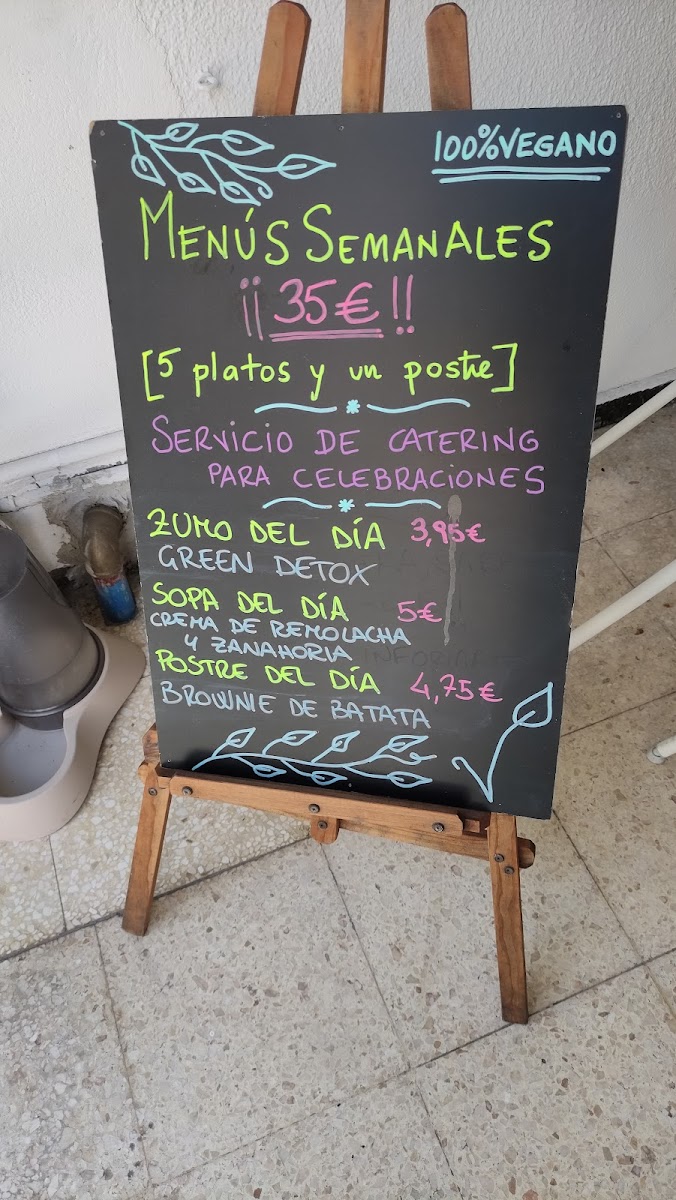 100%VEGANO
MENÚS SEMANALES
¡¡35€!!
[5 platos y un postre]
SERVICIO DE CATERING
PARA CELEBRACIONES
ZUMO DEL DÍA 3,95€
GREEN DETOX
SOPA DEL DÍA 5€
CREMA DE REMOLACHA
Y ZANAHORIA
POSTRE DEL DÍA 4,75€
BROWNIE DE BATATA